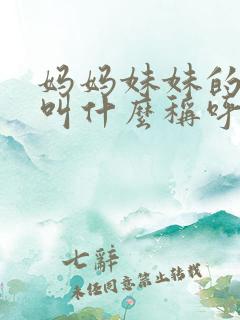 妈妈妹妹的
叫什麽稱呼
七辭
未经同意禁止转载